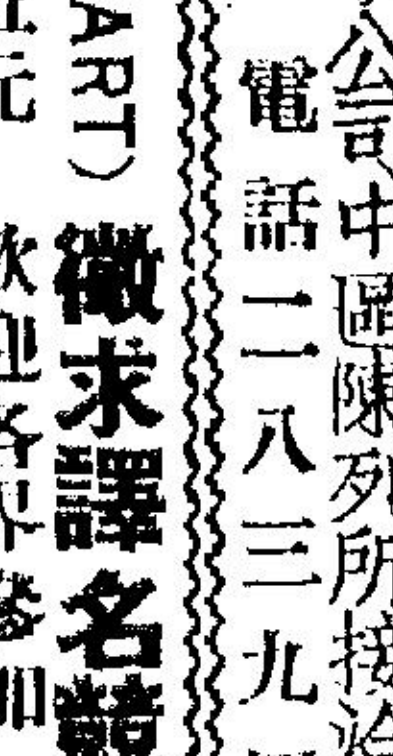 公司中區陳列所接洽
電話二八三九
ART）徵求譯名
元 歡迎各界參加